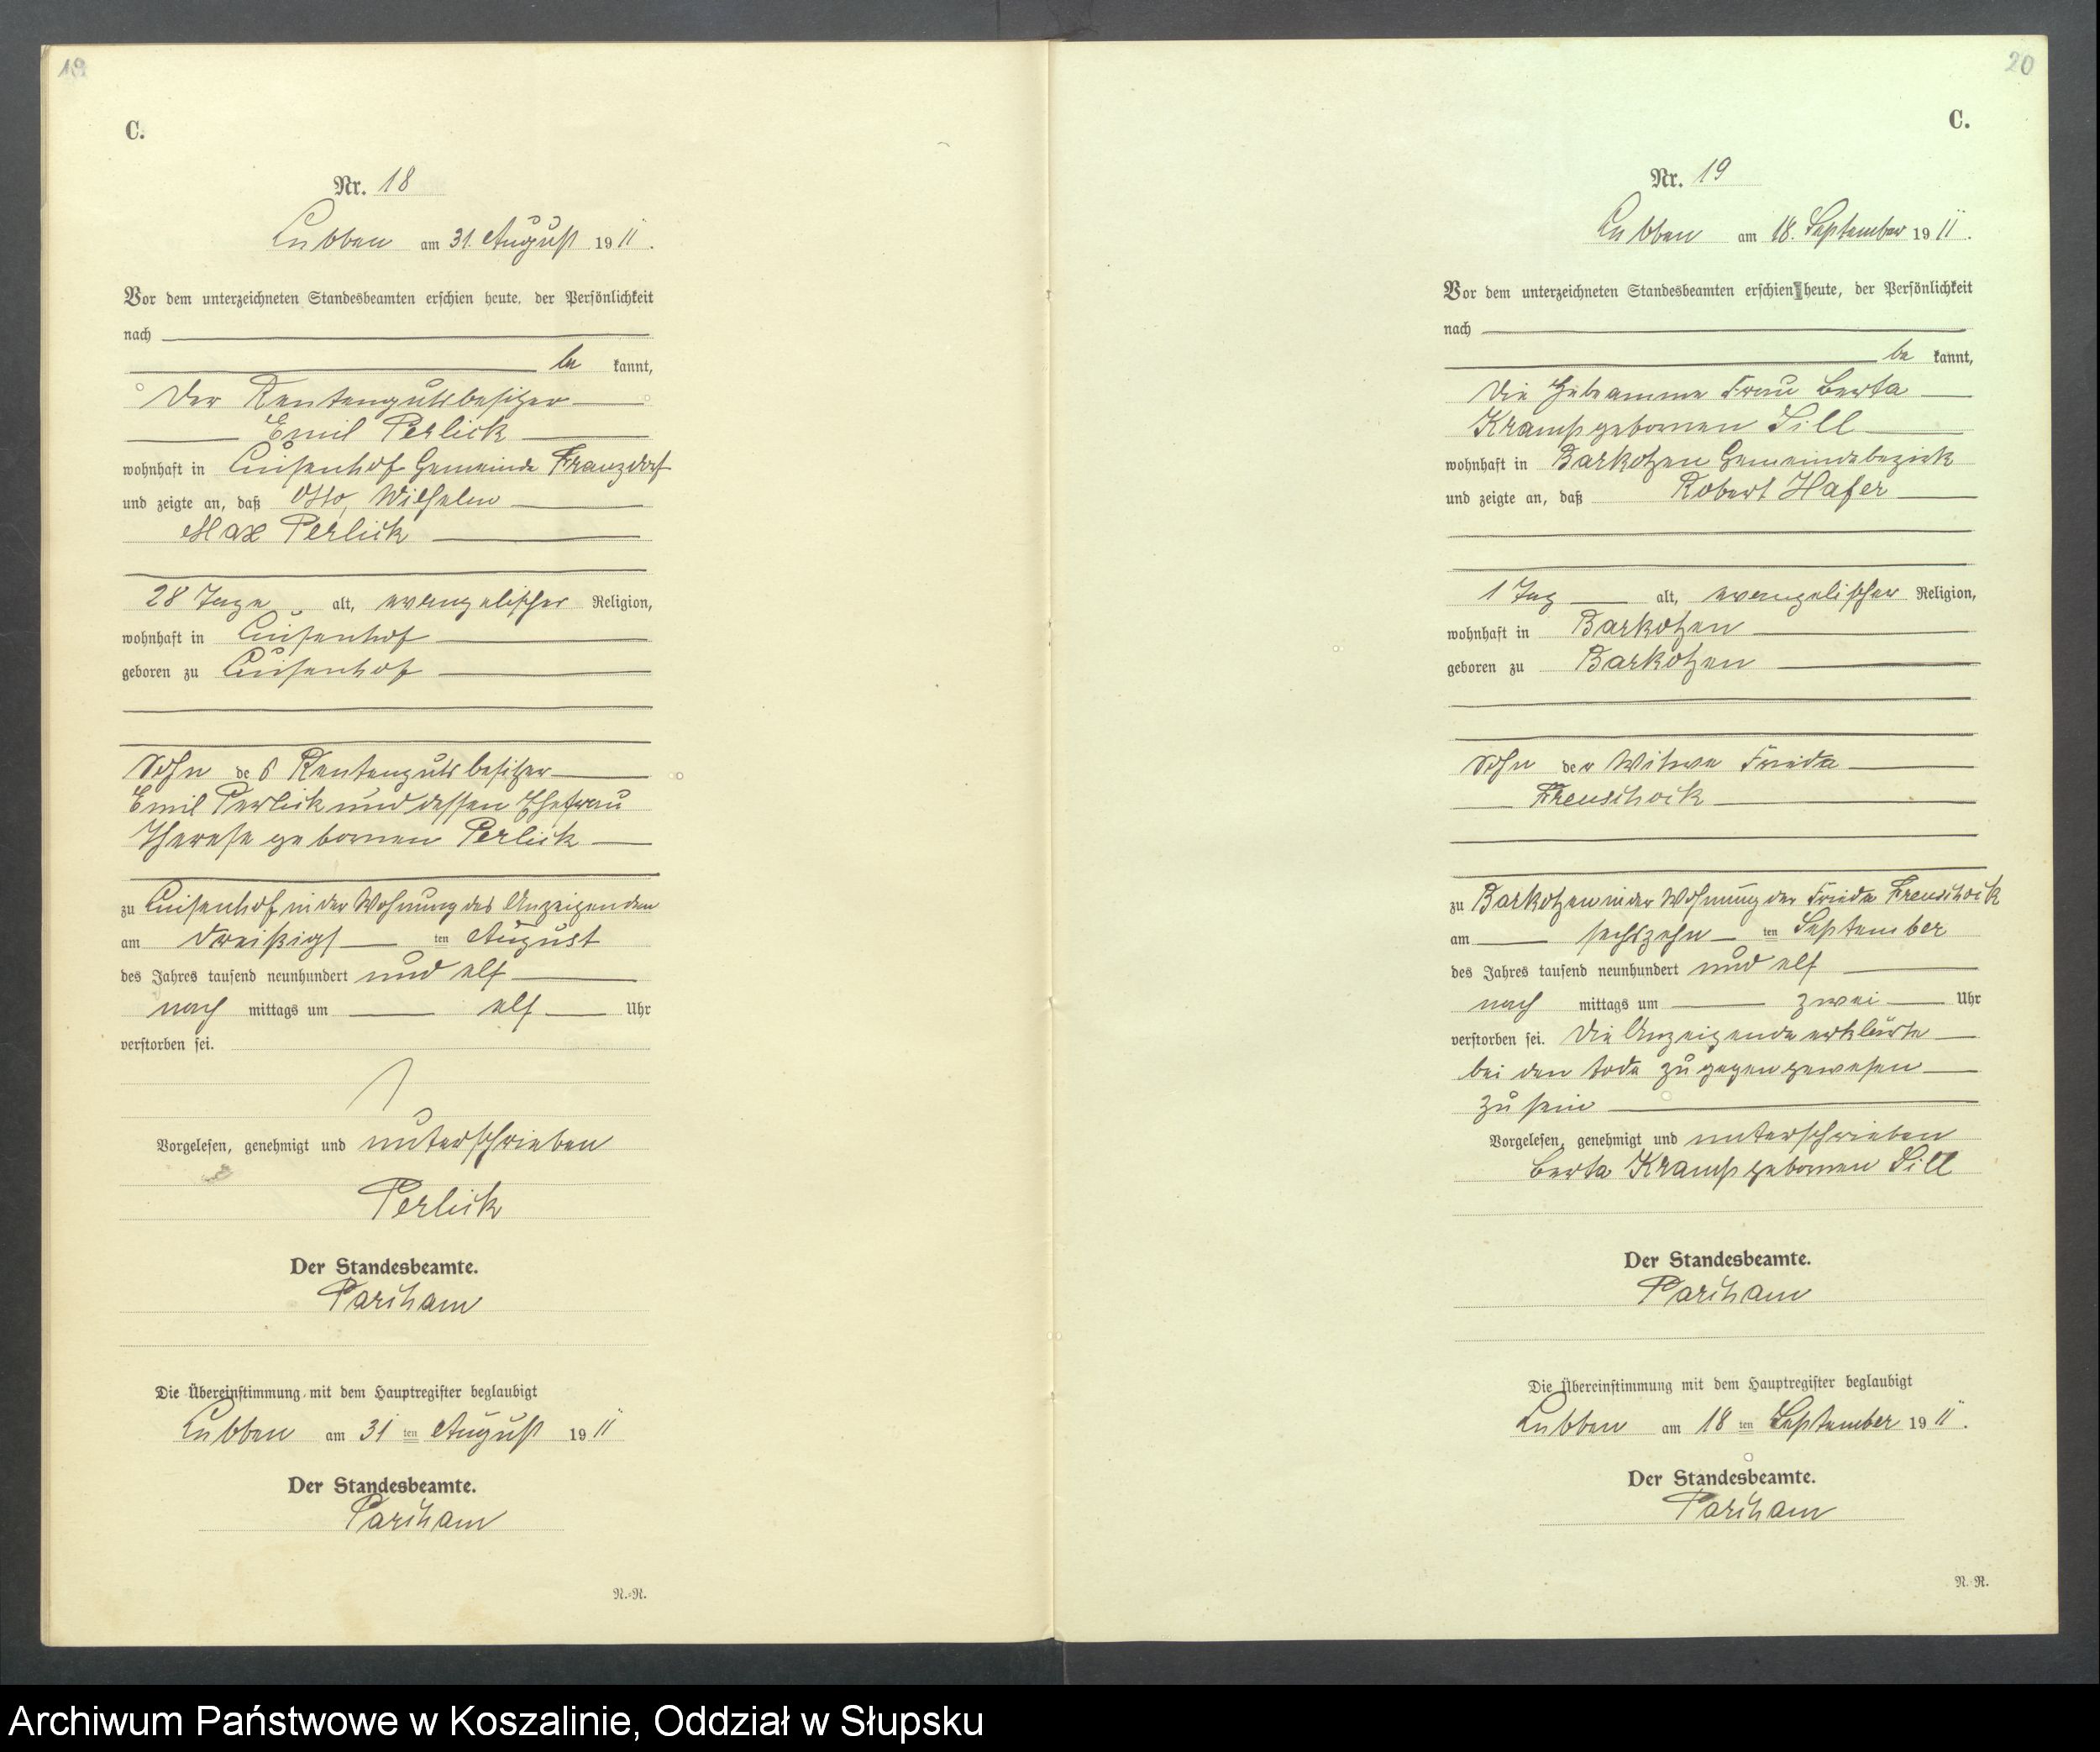 19
C.
Nr. 18
Lubben am 31. August 1911.
Vor dem unterzeichneten Standesbeamten erschien heute, der Persönlichkeit
nach
be kannt,
Der Rentengutsbesitzer
Emil Perlick
wohnhaft in Luisenhof Gemeinde Franzdorf
und zeigte an, daß Otto, Wilhelm
Max Perlick
28 Tage alt, evangelischer Religion,
wohnhaft in Luisenhof
geboren zu Luisenhof
Sohn des Rentengutsbesitzer
Emil Perlick und dessen Ehefrau
Therese gebornen Perlick
zu Luisenhof in der Wohnung des Anzeigenden
am dreißigs ten August
des Jahres tausend neunhundert und elf
nach mittags um elf Uhr
verstorben sei.
Vorgelesen, genehmigt und unterschrieben
Perlick
Der Standesbeamte.
Pariham
Die Übereinstimmung mit dem Hauptregister beglaubigt
Lubben am 31 ten August 1911
Der Standesbeamte.
Pariham
N.-N.
20
C.
Nr. 19
Lubben am 18. September 1911.
Vor dem unterzeichneten Standesbeamten erschien heute, der Persönlichkeit
nach
be kannt,
Die Hebamme Frau Berta
Kramp gebornen Sill
wohnhaft in Barkotzen Gemeindebezirk
und zeigte an, daß Robert Hafer
1 Tag alt, evangelischer Religion,
wohnhaft in Barkotzen
geboren zu Barkotzen
Sohn der Witwe Frieda
Freuschock
zu Barkotzen in der Wohnung der Frieda Freuschock
am sechszehn ten September
des Jahres tausend neunhundert und elf
nach mittags um zwei Uhr
verstorben sei. Die Anzeigende erklärte
bei den Tode zugegen gewesen
zu sein
Vorgelesen, genehmigt und unterschrieben
Berta Kramp gebornen Sill
Der Standesbeamte.
Pariham
Die Übereinstimmung mit dem Hauptregister beglaubigt
Lubben am 18 ten September 1911.
Der Standesbeamte.
Pariham
N.-N.
Archiwum Państwowe w Koszalinie, Oddział w Słupsku